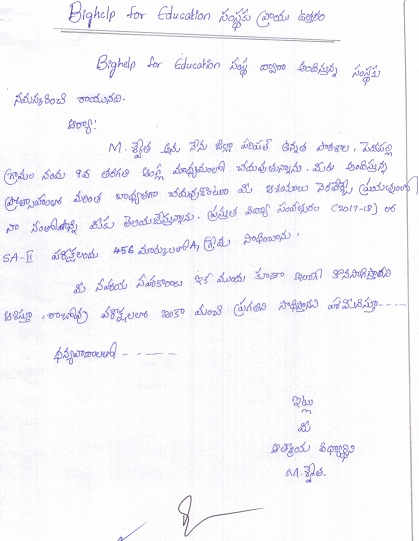 Bighelp for Education సంస్థకు వ్రాయు ఉత్తరం
Bighelp for Education సంస్థ ద్వారా అందిస్తున్న సంస్థకు
నమస్కరించి రాయునది.
ఆర్యా!
M. శ్వేత అను నేను జిల్లా పరిషత్ ఉన్నత పాఠశాల,
గ్రామం నందు 9వ తరగతి ఆంగ్ల మాధ్యమంలో చదువుతున్నాను. మీరు అందిస్తున్న
ప్రోత్సాహంతో మరింత బాధ్యతగా చదువుకుంటూ మీ ఆశయాలు నెరవేర్చే ప్రయత్నంలో
నా సంతోషాన్ని మీకు తెలియజేస్తున్నాను. ప్రస్తుత విద్యా సంవత్సరం (2017-18) లో
SA-II పరీక్షలందు 456 మార్కులతో A, గ్రేడు సాధించాను.
మీ సహాయ సహకారాలు ఇక ముందు కూడా ఇలాగే కొనసాగిస్తారని
ఆశిస్తూ, రాబోవు పరీక్షలలో ఇంకా మంచి ప్రగతిని సాధిస్తానని హామీనిస్తూ ---
ధన్యవాదాలతో -----
ఇట్లు
మీ
ఆత్మీయ విద్యార్థిని
M. శ్వేత.